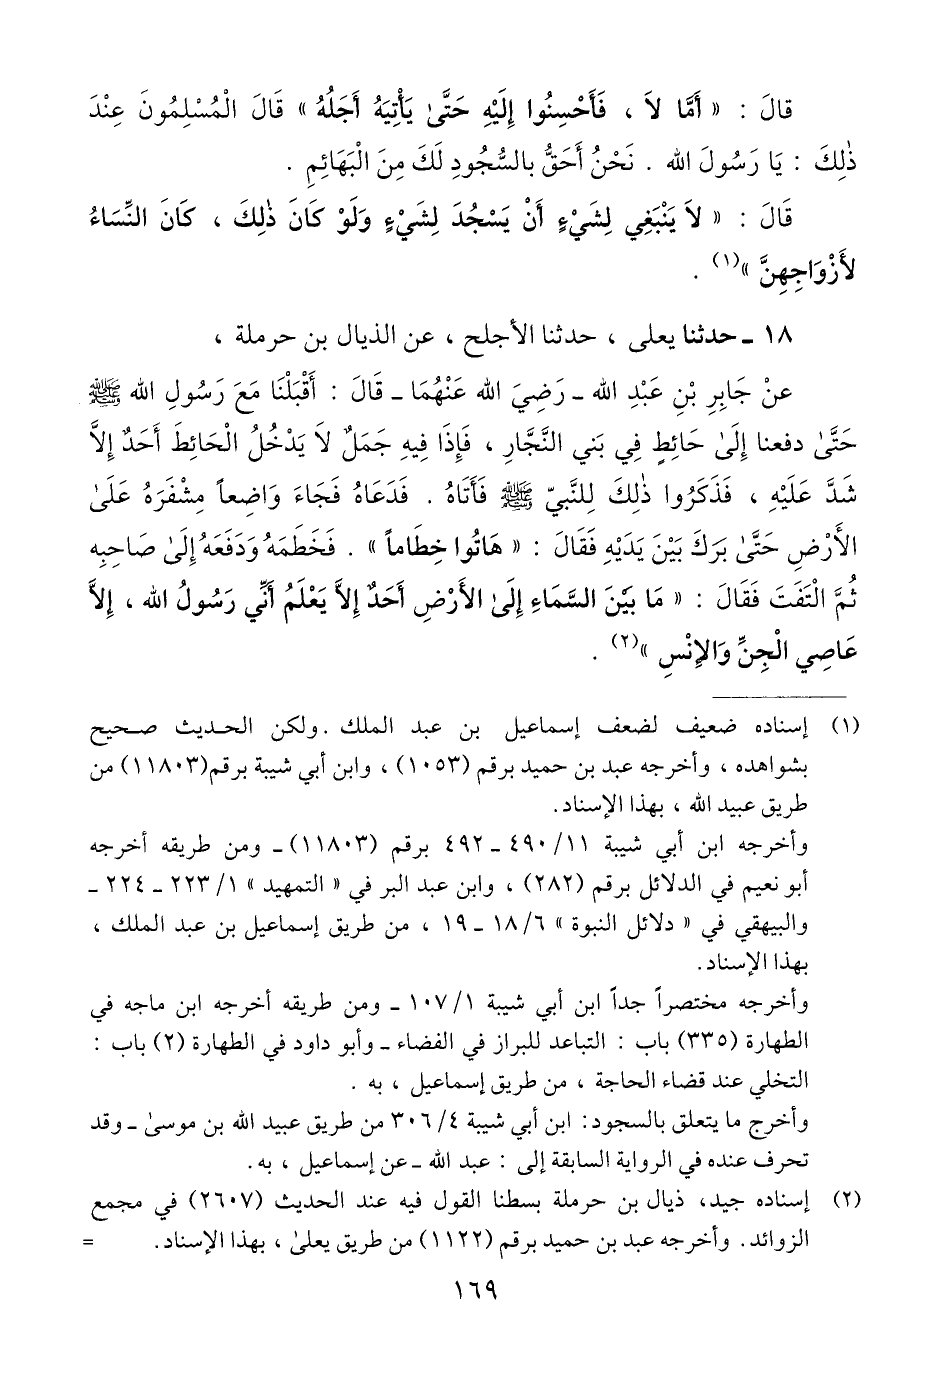 قالَ : « أَمَّا لاَ ، فَأَحْسِنُوا إِلَيْهِ حَتَّىٰ يَأْتِيَهُ أَجَلُهُ » قَالَ الْمُسْلِمُونَ عِنْدَ
ذٰلِكَ : يَا رَسُولَ الله . نَحْنُ أَحَقُّ بالسُّجُودِ لَكَ مِنَ الْبَهَائِمِ .
قَالَ : « لاَ يَنْبَغِي لِشَيْءٍ أَنْ يَسْجُدَ لِشَيْءٍ وَلَوْ كَانَ ذٰلِكَ ، كَانَ النِّسَاءُ
لأَزْوَاجِهِنَّ »(١) .
١٨ ـ حدثنا يعلى ، حدثنا الأجلح ، عن الذيال بن حرملة ،
عنْ جَابِرِ بْنِ عَبْدِ الله ـ رَضِيَ الله عَنْهُمَا ـ قَالَ : أَقْبَلْنَا مَعَ رَسُولِ الله ﷺ
حَتَّىٰ دفعنا إِلَىٰ حَائِطٍ فِي بَنِي النَّجَّارِ ، فَإِذَا فِيهِ جَمَلٌ لاَ يَدْخُلُ الْحَائِطَ أَحَدٌ إِلاَّ
شَدَّ عَلَيْهِ ، فَذَكَرُوا ذٰلِكَ لِلنَّبِيّ ﷺ فَأَتَاهُ . فَدَعَاهُ فَجَاءَ وَاضِعاً مِشْفَرَهُ عَلَىٰ
الأَرْضِ حَتَّىٰ بَرَكَ بَيْنَ يَدَيْهِ فَقَالَ : « هَاتُوا خِطَاماً » . فَخَطَمَهُ وَدَفَعَهُ إِلىٰ صَاحِبِه
ثُمَّ الْتَفَتَ فَقَالَ : « مَا بَيْنَ السَّمَاءِ إِلَىٰ الأَرْضِ أَحَدٌ إِلاَّ يَعْلَمُ أَنِّي رَسُولُ الله ، إِلاَّ
عَاصِي الْجِنِّ وَالإِنْسِ »(٢) .
(١) إسناده ضعيف لضعف إسماعيل بن عبد الملك . ولكن الحديث صحيح
بشواهده ، وأخرجه عبد بن حميد برقم (١٠٥٣) ، وابن أبي شيبة برقم(١١٨٠٣) من
طريق عبيد الله ، بهذا الإسناد.
وأخرجه ابن أبي شيبة ١١/ ٤٩٠ ـ ٤٩٢ برقم (١١٨٠٣) ـ ومن طريقه أخرجه
أبو نعيم في الدلائل برقم (٢٨٢) ، وابن عبد البر في « التمهيد » ١/ ٢٢٣ ـ ٢٢٤ ـ
والبيهقي في « دلائل النبوة » ٦/ ١٨ ـ ١٩ ، من طريق إسماعيل بن عبد الملك ،
بهذا الإسناد.
وأخرجه مختصراً جداً ابن أبي شيبة ١/ ١٠٧ ـ ومن طريقه أخرجه ابن ماجه في
الطهارة (٣٣٥) باب : التباعد للبراز في الفضاء ـ وأبو داود في الطهارة (٢) باب :
التخلي عند قضاء الحاجة ، من طريق إسماعيل ، به .
وأخرج ما يتعلق بالسجود: ابن أبي شيبة ٤/ ٣٠٦ من طريق عبيد الله بن موسىٰ ـ وقد
تحرف عنده في الرواية السابقة إلى : عبد الله ـ عن إسماعيل ، به.
(٢) إسناده جيد، ذيال بن حرملة بسطنا القول فيه عند الحديث (٢٦٠٧) في مجمع
الزوائد. وأخرجه عبد بن حميد برقم (١١٢٢) من طريق يعلىٰ ، بهذا الإسناد. =
١٦٩